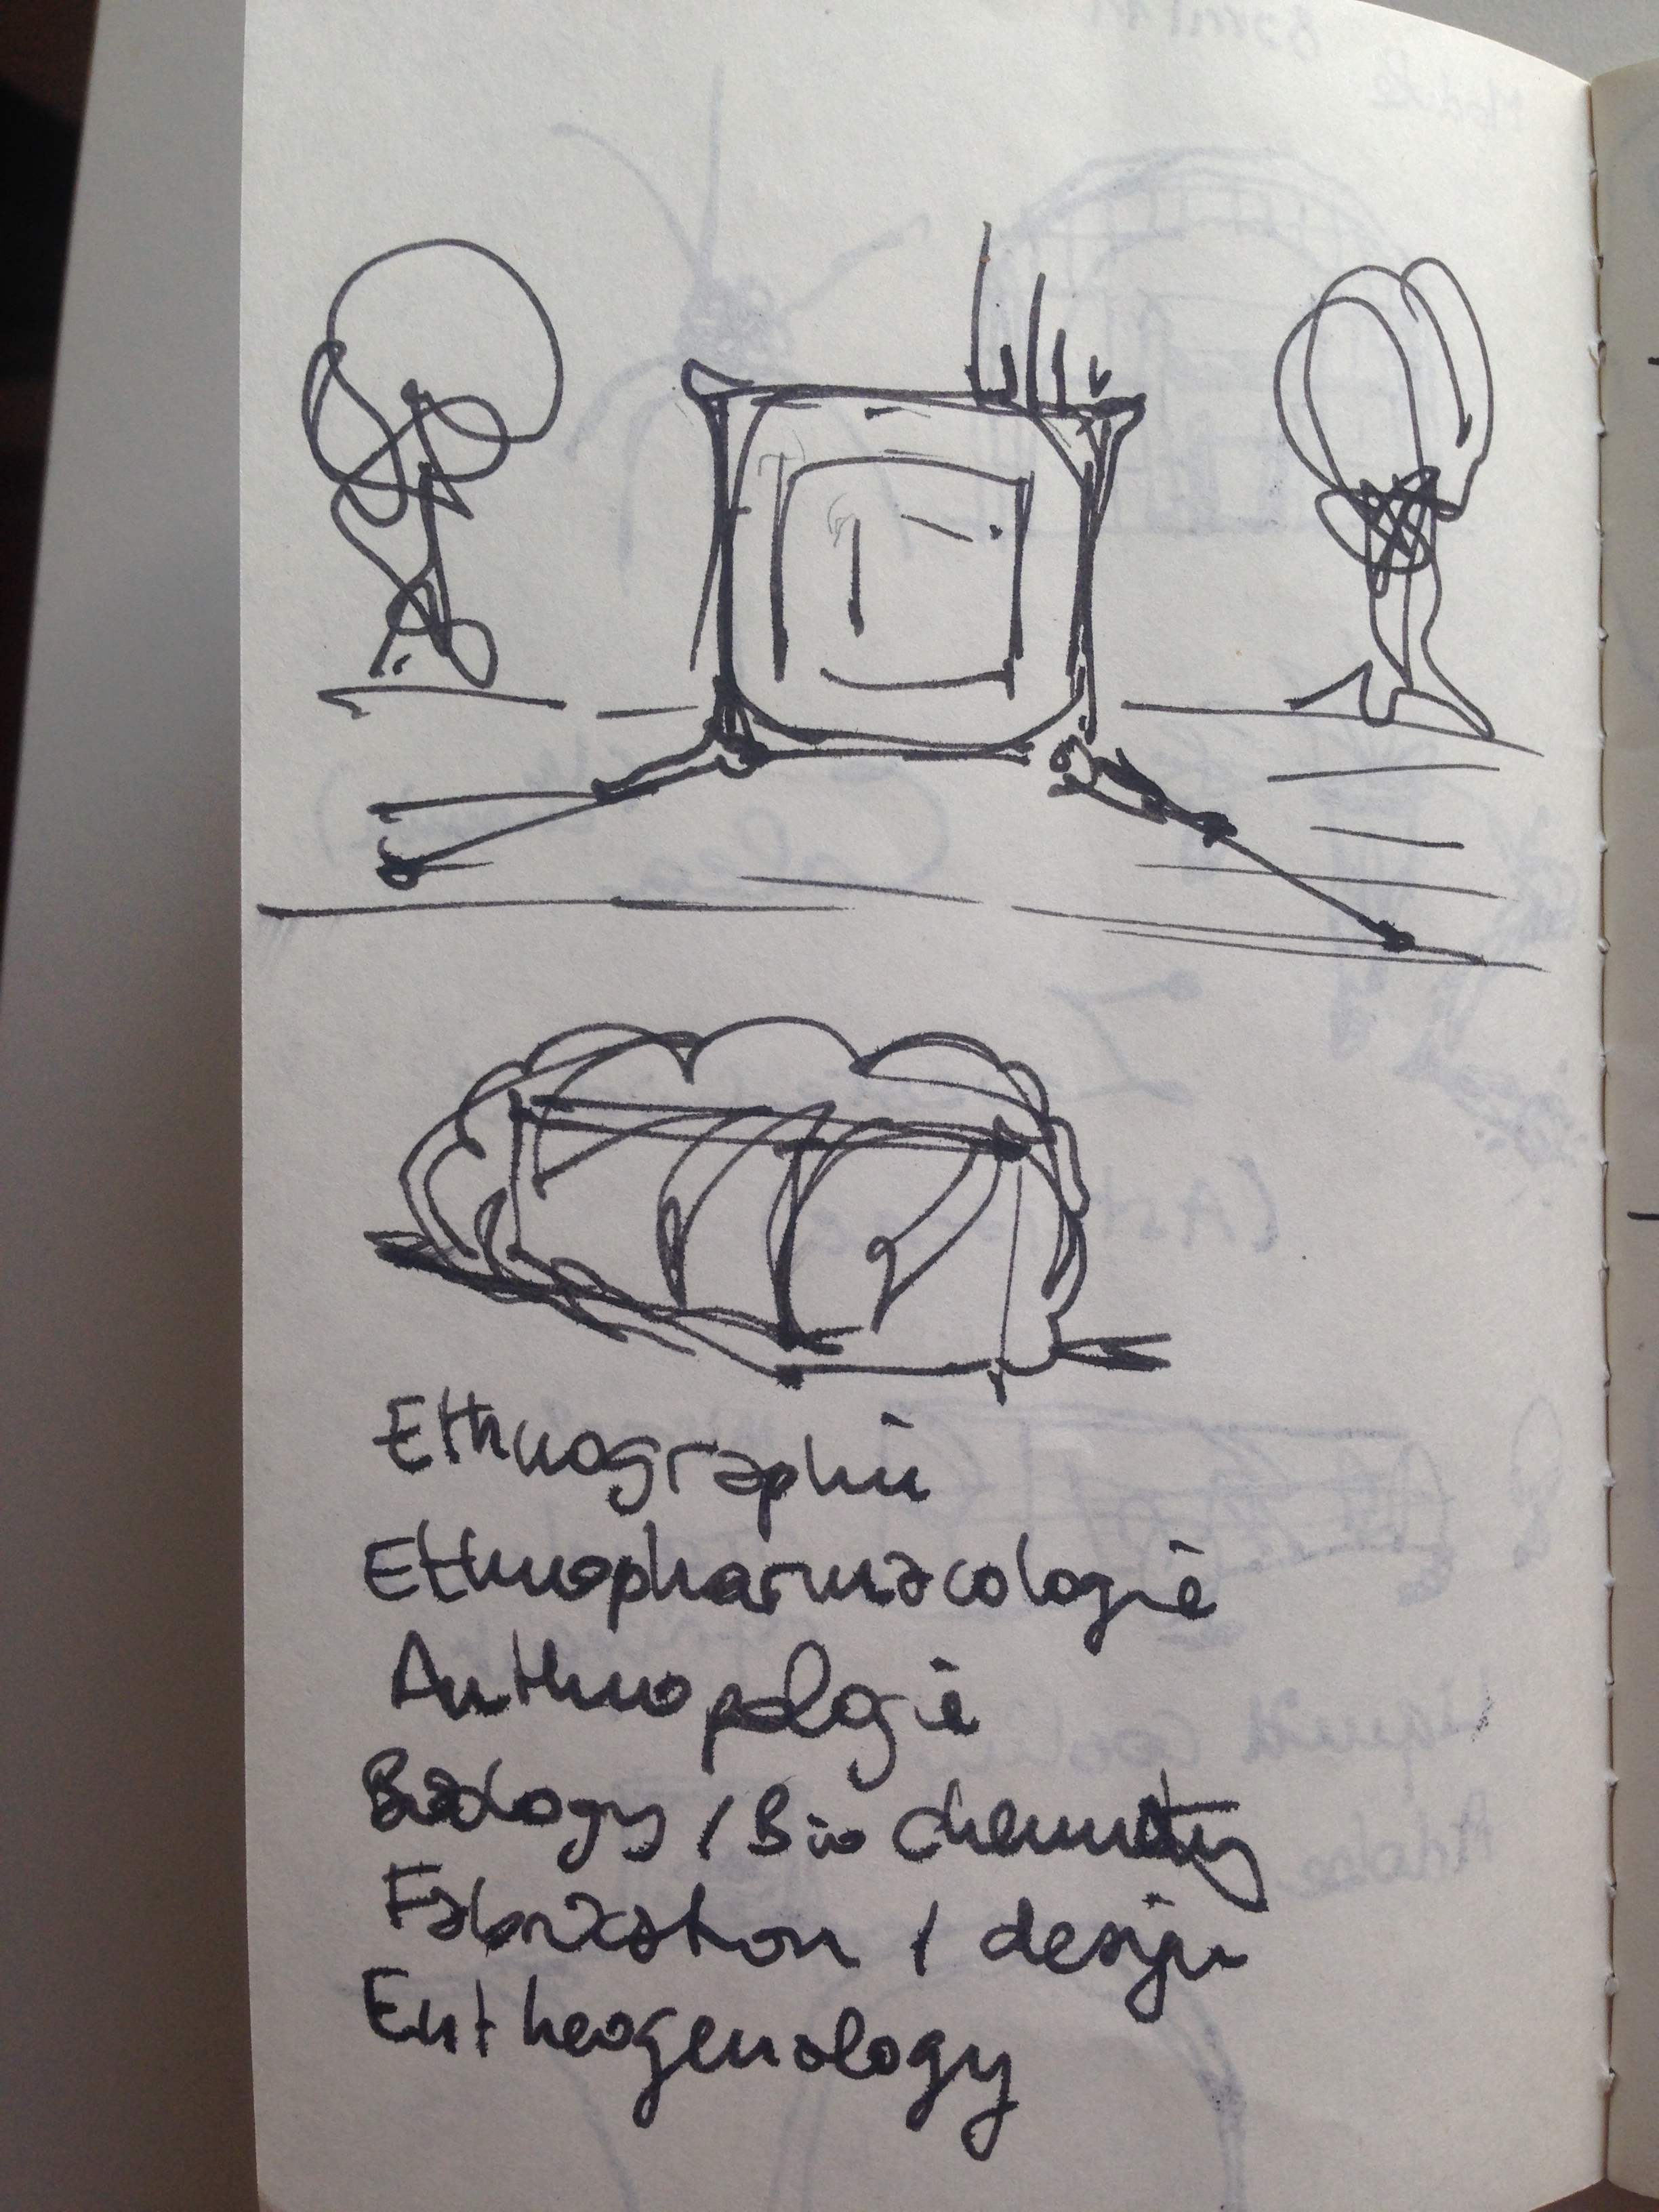 Ethnographie
Ethnopharmacologie
Anthropologie
Biology / Bio chemistry
Fabrication / design
Entheogenology